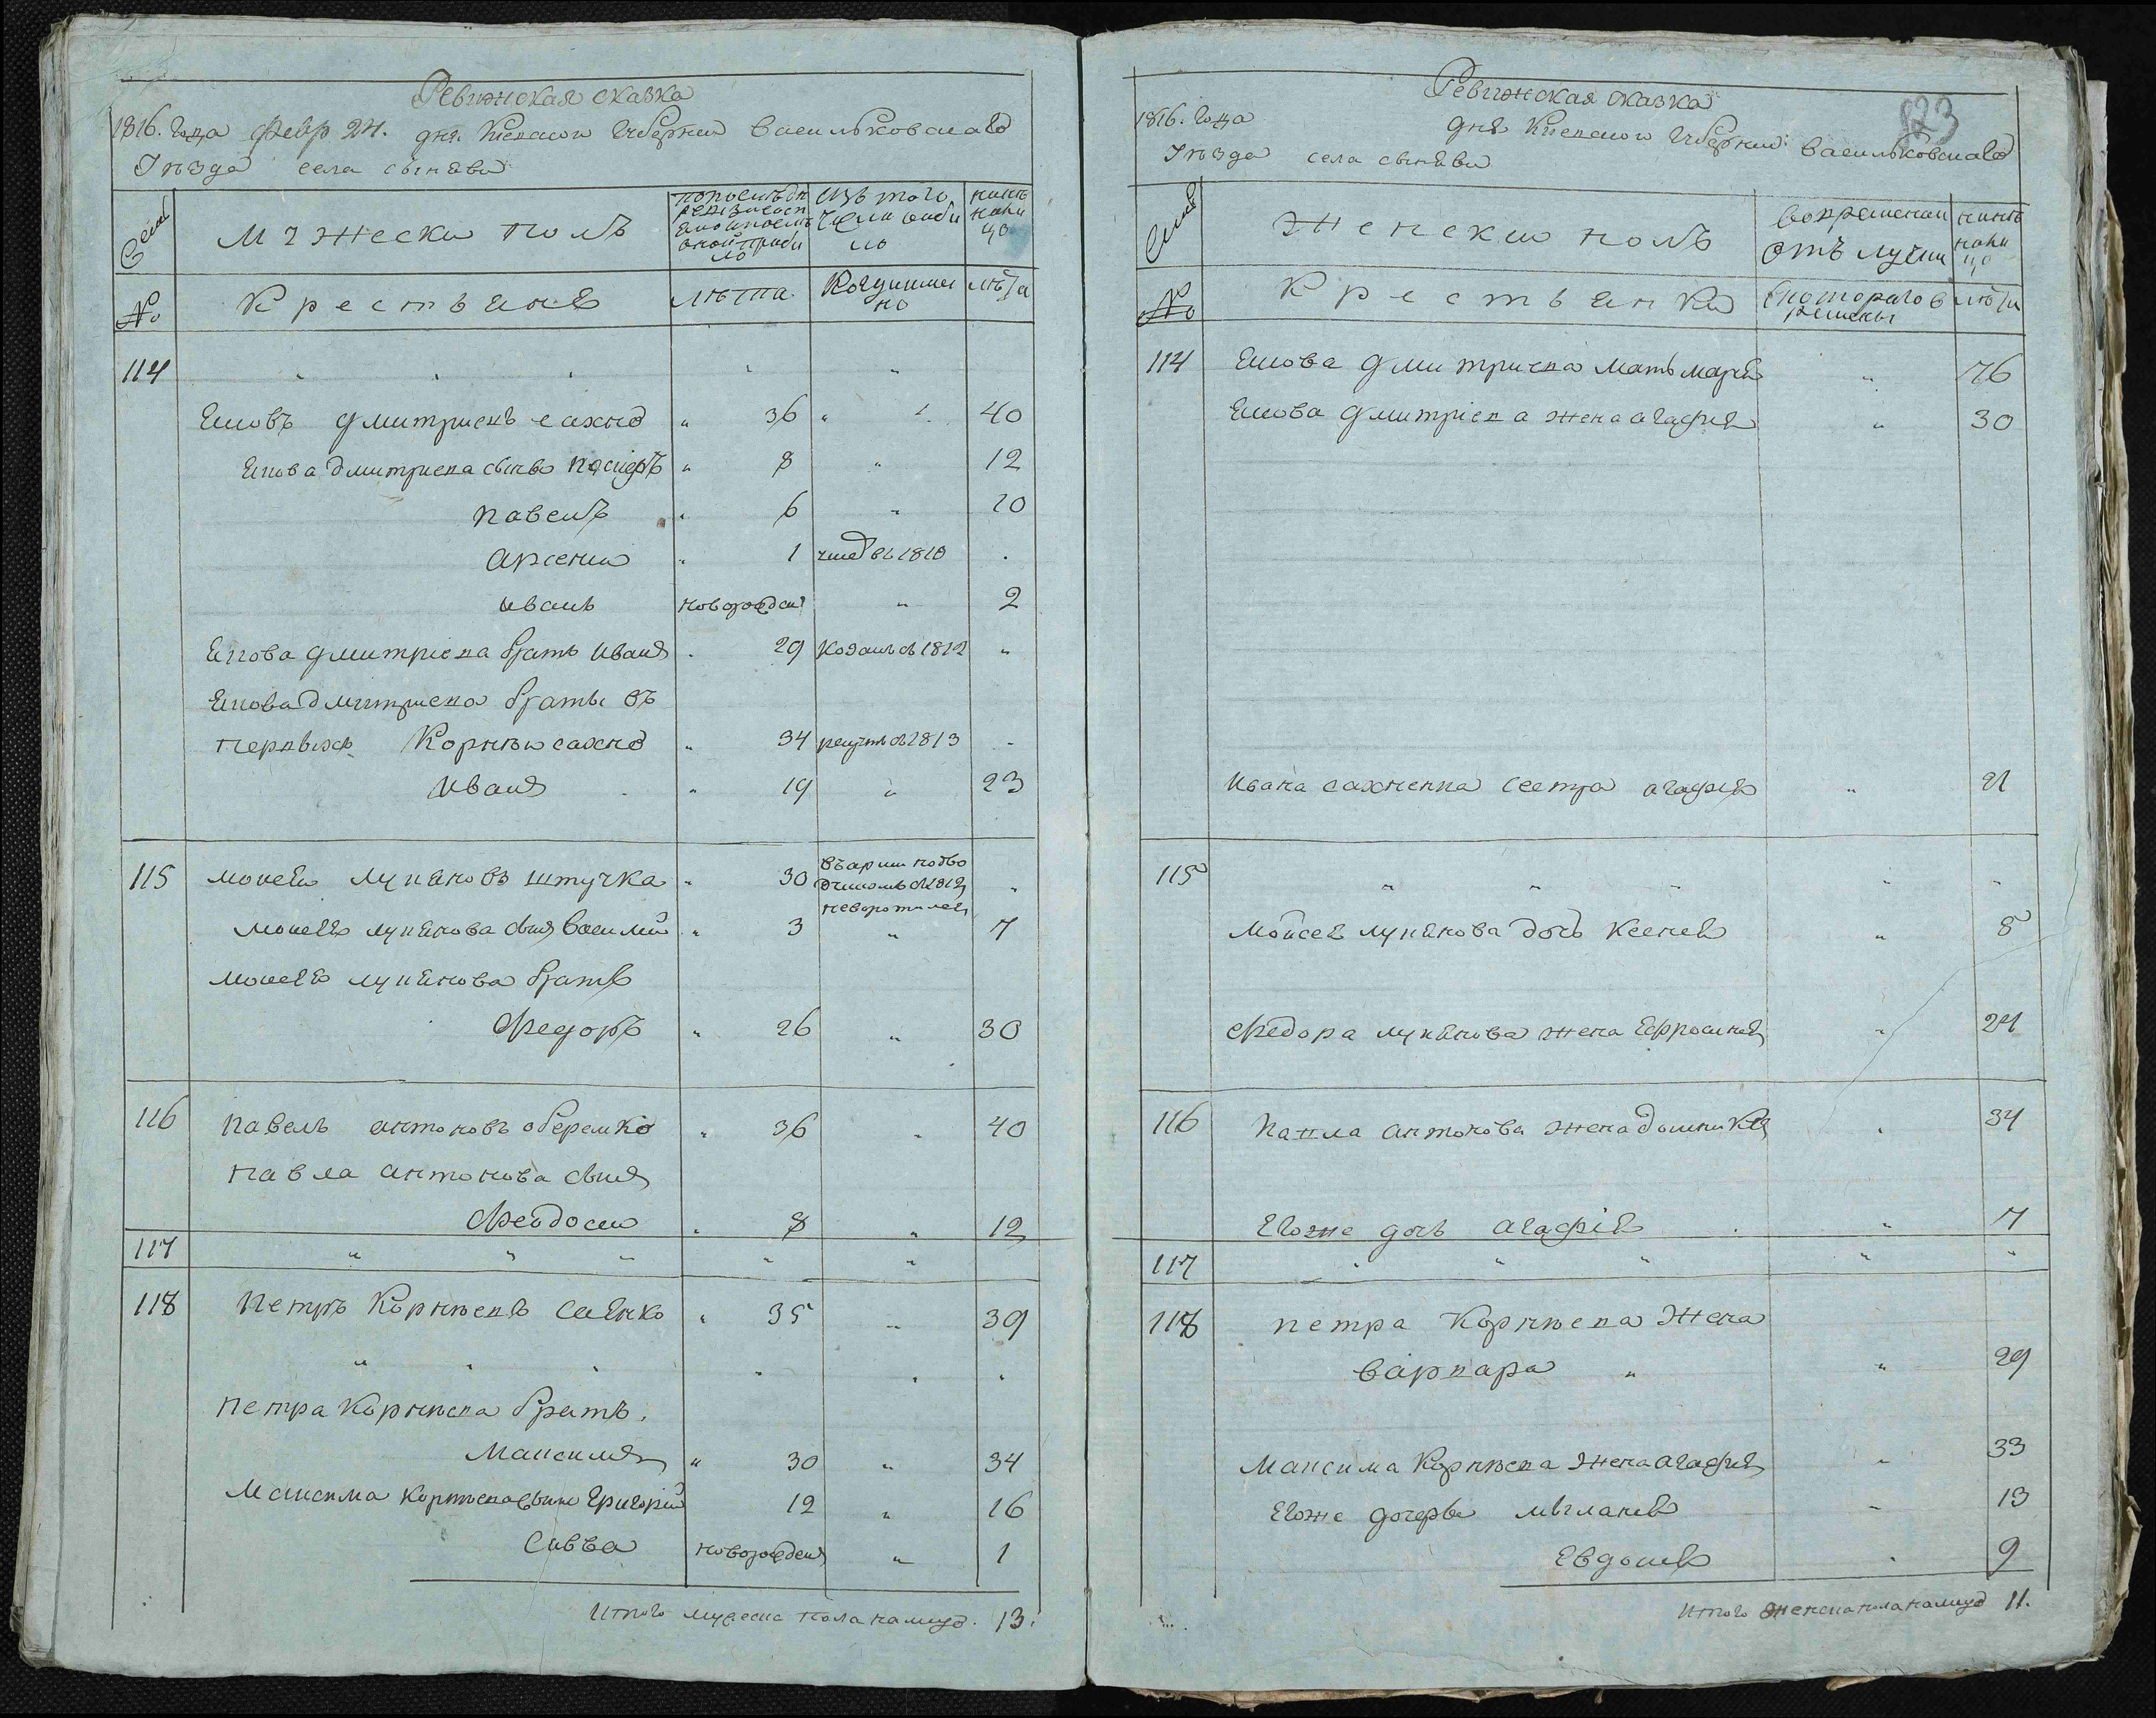 Ревижская сказка
1816. Года Февр 24. дня Киевской Губернии Васильковскаго
Уѣзда села сыняви
Семьи
Мужески полъ
по последн ревизи состояло и после оной прибыло
Изъ того числа выбило
нынѣ налицо
№
Крестьяне
лѣта
Когда именно
лѣта
114 " " " " "
Яковъ дмитриевъ сахно " 36 " " 40
Якова дмитриева сынъ никифоръ " 8 " 12
Павелъ " 6 " 10
Арсении " 1 умеръ въ 1810 .
иванъ новорожден " 2
Якова дмитриева братъ иванъ . 29 Козакъ въ 1812 "
Якова дмитриева братья въ
первыхъ Корнѣи сахно " 34 рекрутъ въ 1813 -
иванъ " 19 " 23
115 моисеи лукяновъ штучка " 30 въ арми подво дчикомъ въ 1812 неворотился "
моисея лукянова сынъ Василии " 3 " 7
моисея лукянова братъ
Федоръ " 26 " 30
116 Павелъ антоновъ оберемко " 36 " 40
Павла антонова сынъ
Феодосии " 8 " 12
117 " " " " "
118 Петръ Корнѣевъ саенко " 35 " 39
" " " " " "
Петра Корнѣева братъ,
Максимъ " 30 " 34
Максима Корнѣева сынъ Григорий 12 " 16
Савва новорожден " 1
Итого мужеска пола налицо. 13.
Ревижская сказка
123
1816. Года дня Киевской Губернии Васильковскаго
Уѣзда села сыняви
Семьи
Женски полъ
во временной отълучки
нынѣ налицо
№
Крестьянки
с котораго времены
лѣта
114 Якова дмитриева мать мария " 76
Якова дмитриева жена агафия " 30
Ивана сахненка сестра агафия " 21
115 " " " " "
Моисея лукянова дочь ксения " 8
Федора лукянова жена Ефросиния " 24
116 Павла антонова жена домникия . 34
Егоже дочь агафия " 7
117 " " " " "
118 петра Корнѣева Жена
варвара " " 29
Максима Корнѣева Жена агафия " 33
Егоже дочерье мѣлания " 13
Евдокия . 9
Итого женска пола налицо 11.